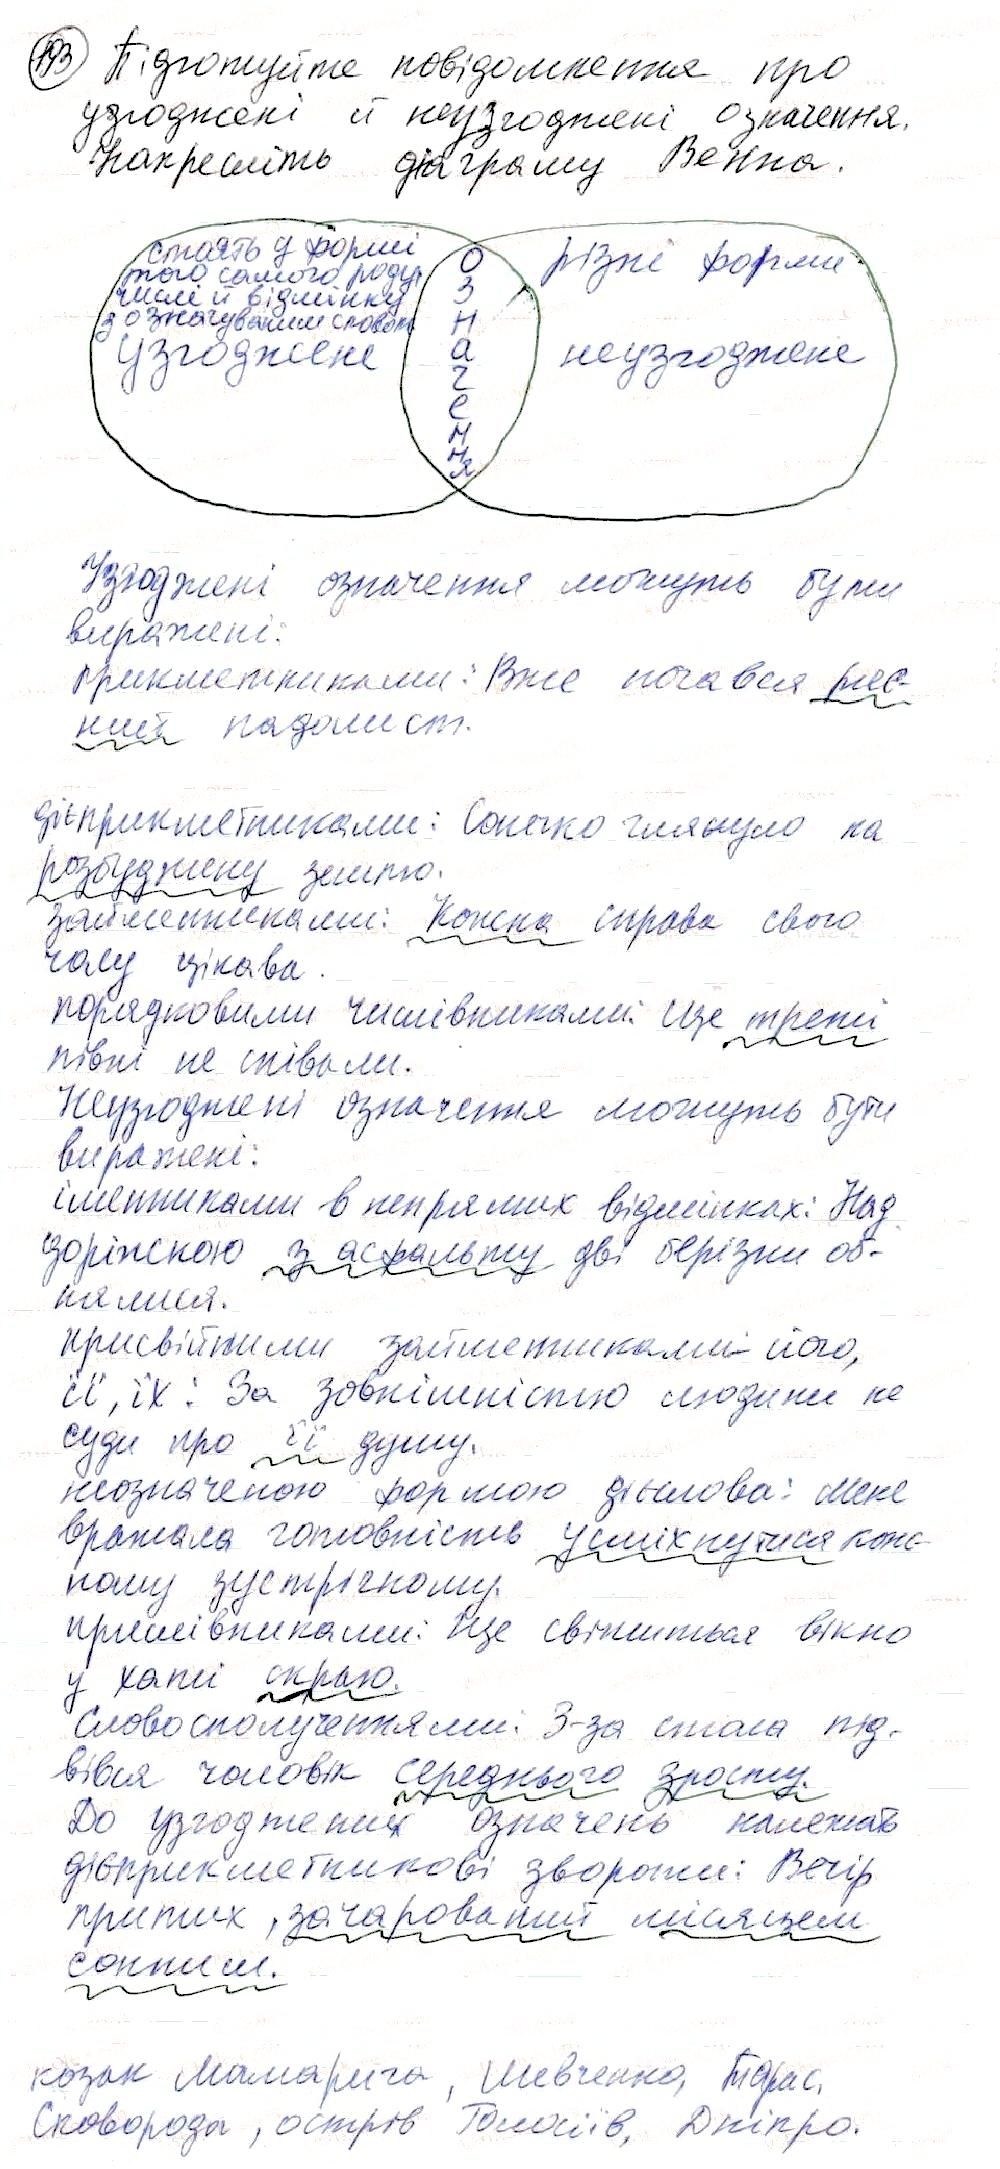 193 Підготуйте повідомлення про
узгоджені й неузгоджені означення.
Накресліть діаграму Венна.
стоять у формі
того самого роду,
числі й відмінку
з означуваним словом
узгоджене
означення
різні форми
неузгоджене
Узгоджені означення можуть бути
виражені:
прикметниками: Вже почався ряс-
ний падолист.
дієприкметниками: Сонечко глянуло на
розбуджену землю.
займенниками: Кожна справа свого
часу цікава.
порядковими числівниками: Ще треті
півні не співали.
Неузгоджені означення можуть бути
виражені:
іменниками в непрямих відмінках: Над
доріжкою з асфальту дві берізки об-
нялися.
присвійними займенниками його,
її, їх: За зовнішністю людини не
суди про її душу.
неозначеною формою дієслова: Мене
вражала готовність усміхнутися кож-
ному зустрічному.
прислівниками: Ще світиться вікно
у хаті скраю.
Словосполученнями: З-за стола під-
вівся чоловік середнього зросту.
До узгоджених означень належать
дієприкметникові звороти: Вечір
притих, зачарований місяцем
сонним.
козак Мамарига, Шевченко, Тарас,
Сковорода, острів Голосіїв, Дніпро.